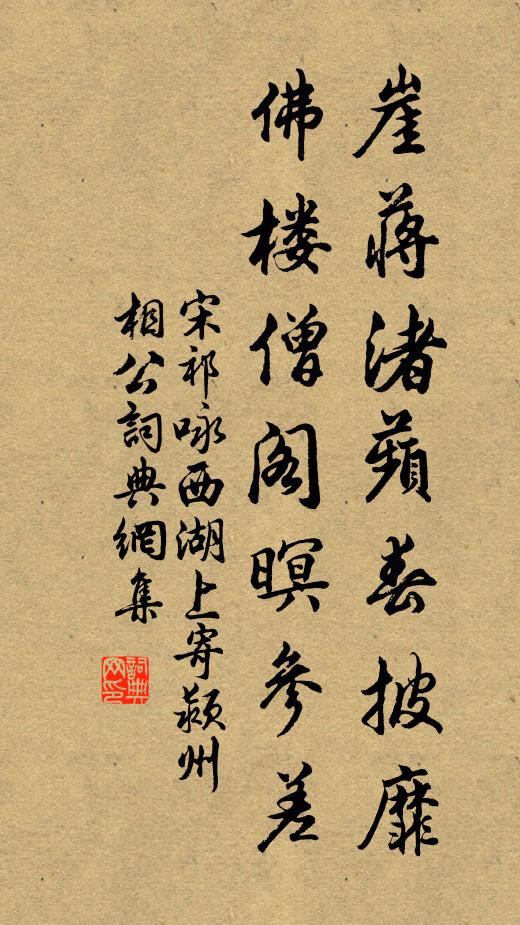 崖蒋渚蘋春披靡
佛楼僧阁暝參差
宋祁咏西湖上寄颍州
相公詞典網集
詞典网印